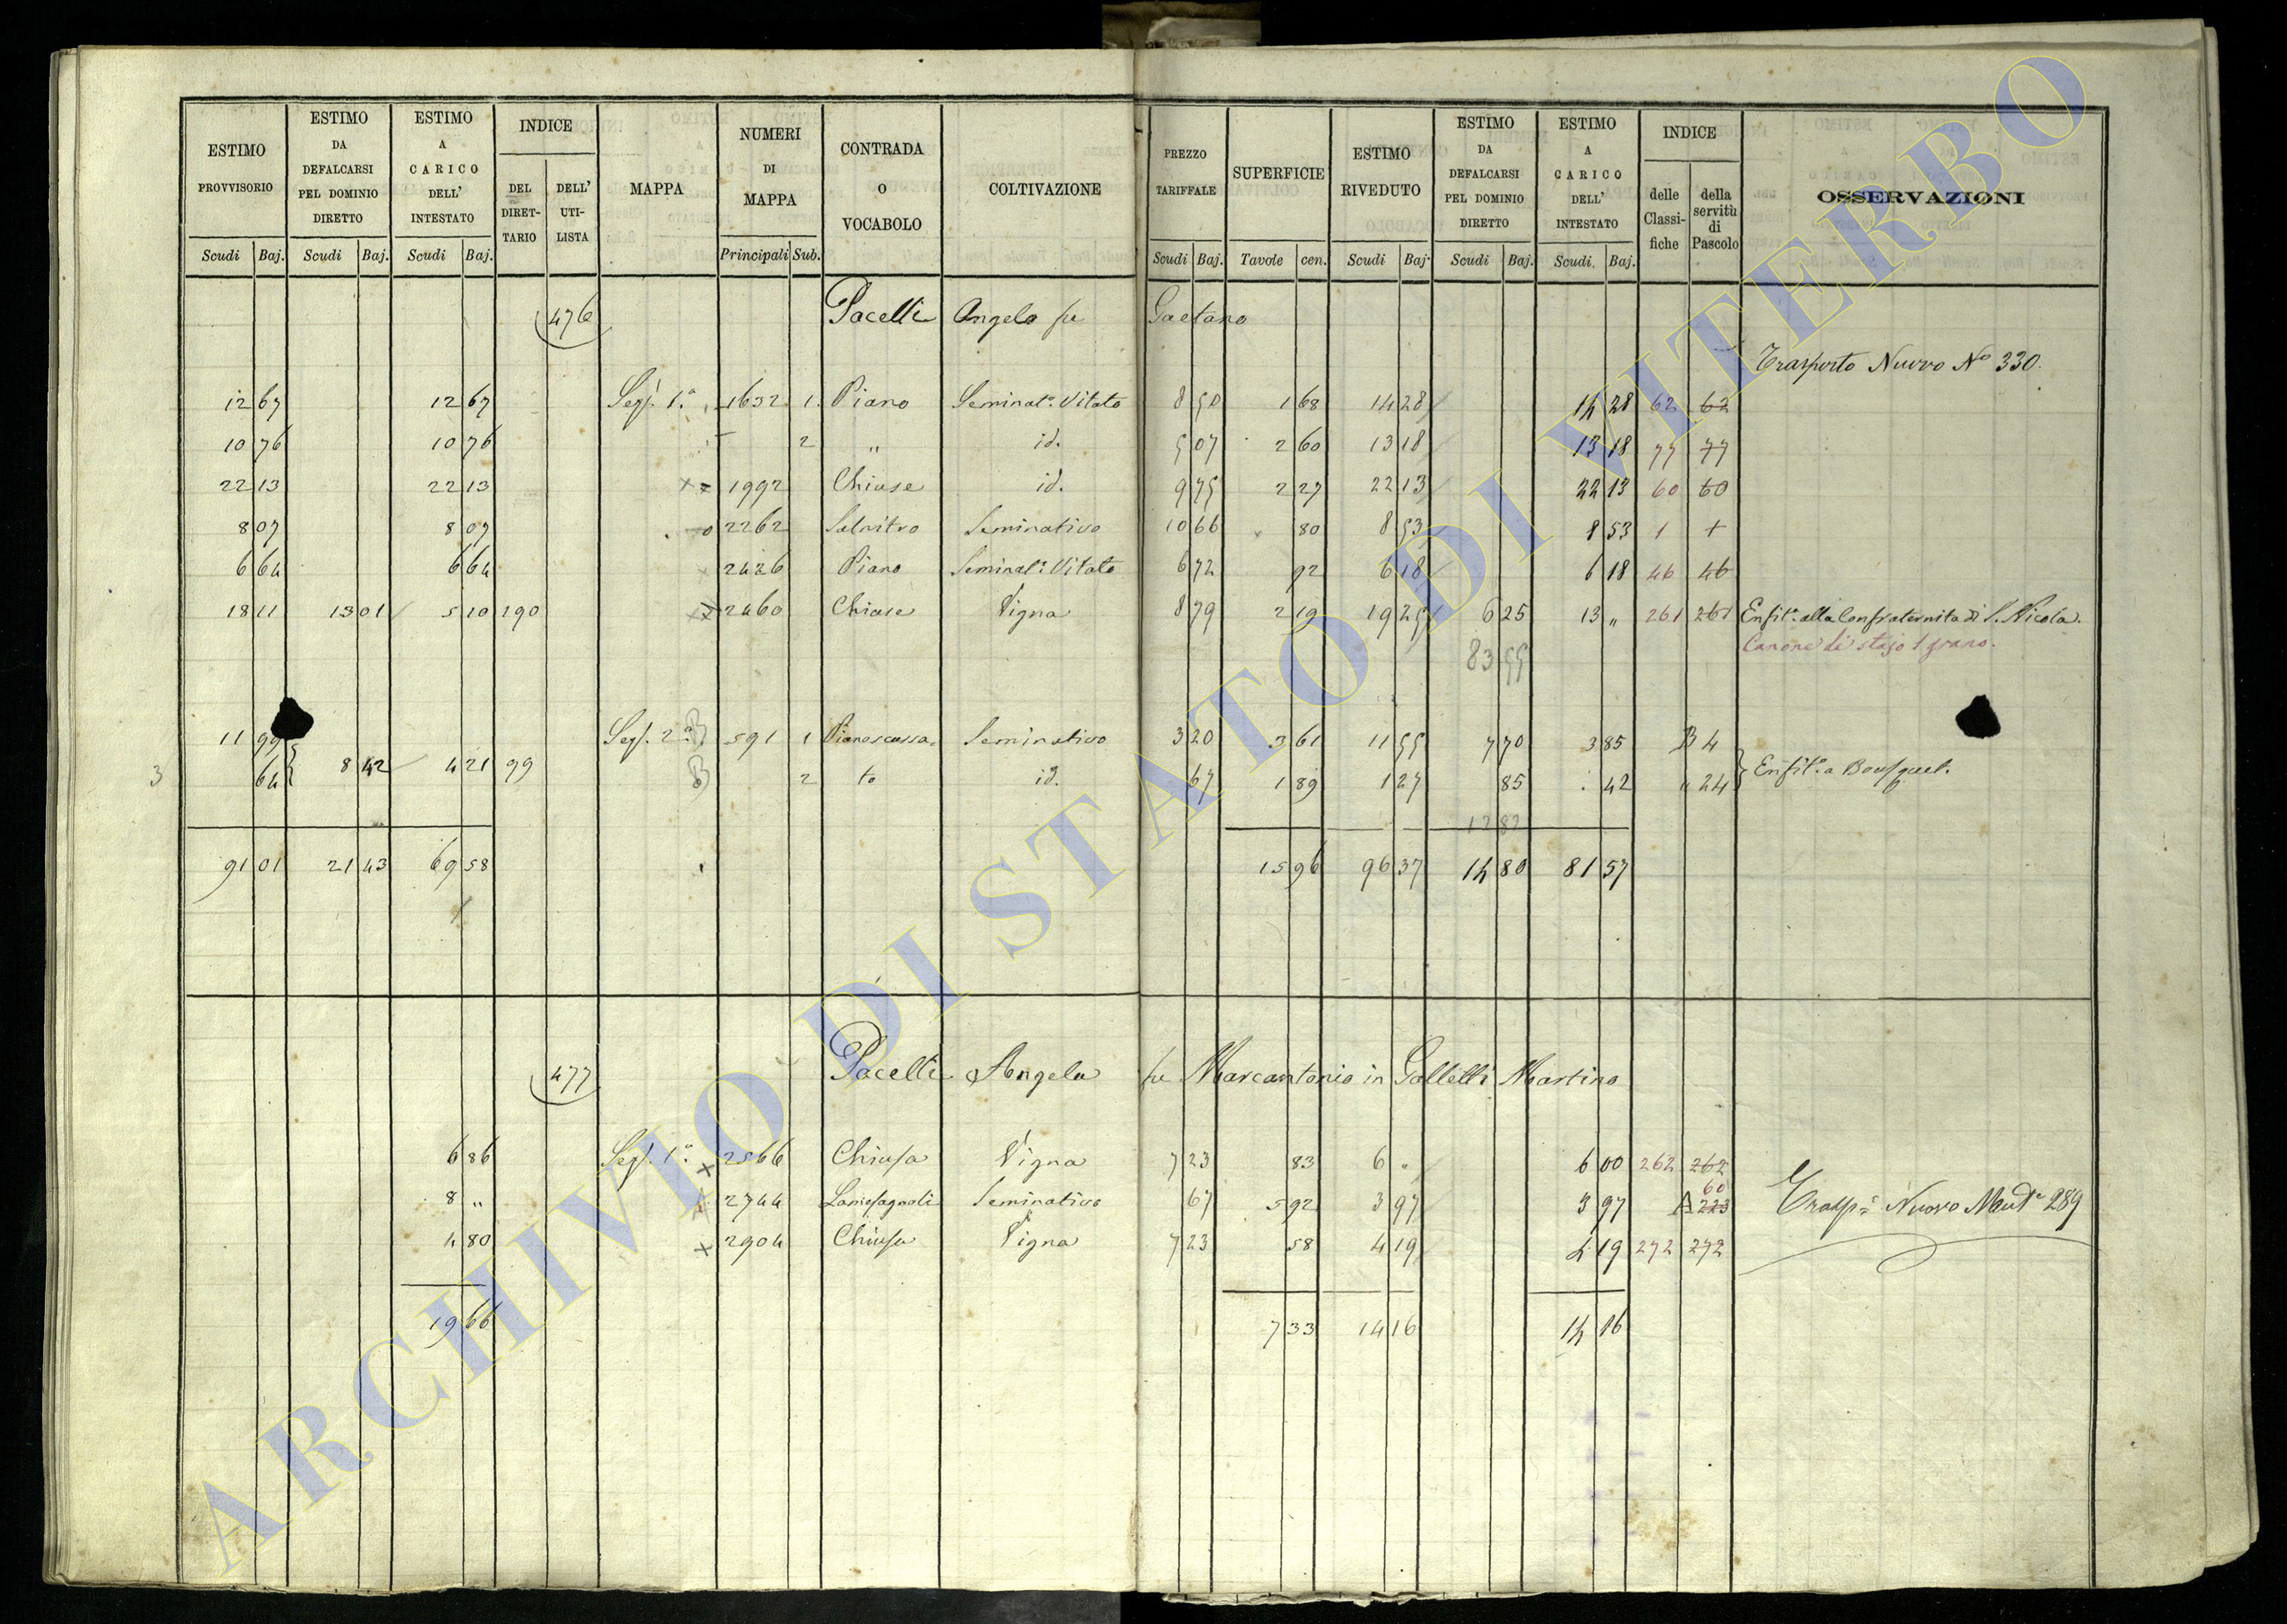 ESTIMO PROVVISORIO | ESTIMO DA DEFALCARSI PEL DOMINIO DIRETTO | ESTIMO A CARICO DELL' INTESTATO | INDICE | MAPPA | NUMERI DI MAPPA | CONTRADA O VOCABOLO | COLTIVAZIONE | PREZZO TARIFFALE | SUPERFICIE | ESTIMO RIVEDUTO | ESTIMO DA DEFALCARSI PEL DOMINIO DIRETTO | ESTIMO A CARICO DELL' INTESTATO | INDICE | OSSERVAZIONI
DEL DIRET-TARIO | DELL' UTI-LISTA | delle Classi-fiche | della servitù di Pascolo
Scudi | Baj. | Scudi | Baj. | Scudi | Baj. | Principali | Sub. | Scudi | Baj. | Tavole | cen. | Scudi | Baj. | Scudi | Baj. | Scudi. | Baj.
476 Pacelli Angelo fu Gaetano
Trasporto Nuovo No 330.
12 67 | 12 67 | Sez. 1a | 1632 | 1. | Piano | Seminato. Vitato | 8 50 | 1 68 | 14 28 | 14 28 | 62 | 62
10 76 | 10 76 | 2 | " | id. | 5 07 | 2 60 | 13 18 | 13 18 | 77 | 77
22 13 | 22 13 | 1992 | Chiuse | id. | 9 75 | 2 27 | 22 13 | 22 13 | 60 | 60
8 07 | 8 07 | 2262 | Salnitro | Seminativo | 10 66 | 80 | 8 53 | 8 53 | 1 | +
6 64 | 6 64 | 2426 | Piano | Seminato. Vitato | 6 72 | 92 | 6 18 | 6 18 | 46 | 46
18 11 | 13 01 | 5 10 | 190 | 2460 | Chiuse | Vigna | 8 79 | 2 19 | 19 25 | 6 25 | 13 " | 261 | 261 | Enfita. alla Confraternita di S. Nicola.
83 55 | Canone di stajo 1 grano.
11 99 | Sez. 2a | B | 591 | 1 | Pianoscassa= | Seminativo | 3 20 | 3 61 | 11 55 | 7 70 | 3 85 | B 4
3 | 64 | 8 42 | 4 21 | 99 | B | 2 | to | id. | 67 | 1 89 | 1 27 | 85 | 42 | " 24 | Enfita. a Bousquet.
12 82
91 01 | 21 43 | 69 58 | 15 96 | 96 37 | 14 80 | 81 57
477 Pacelli Angela fu Marcantonio in Galletti Martino
6 86 | Sez. 1a | x | 2566 | Chiusa | Vigna | 7 23 | 83 | 6 " | 6 00 | 262 | 262
8 " | 2744 | Seminativo | 67 | 5 92 | 3 97 | 3 97 | 60 | A 223 | Traspo Nuovo 289
4 80 | x | 2904 | Chiusa | Vigna | 7 23 | 58 | 4 19 | 4 19 | 272 | 272
19 66 | 7 33 | 14 16 | 14 16
ARCHIVIO DI STATO DI VITERBO